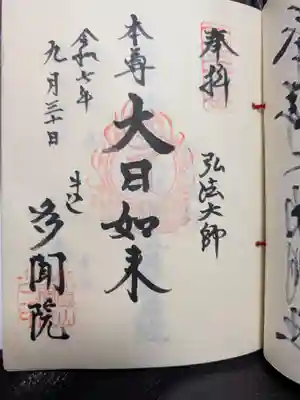 奉拝
弘法大師
本尊
大日如来
令和七年
九月三十日
牛込
多聞院